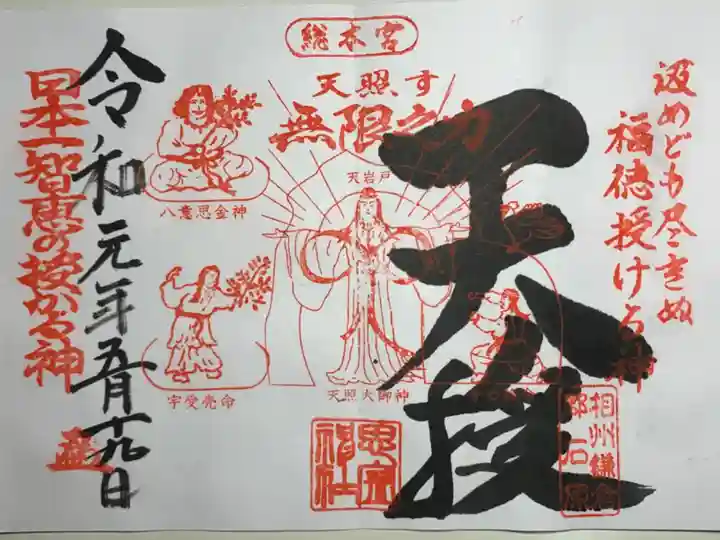 総本宮
汲めども尽きぬ
福徳授ける神
天照す
無限之力
天授
天岩戸
八意思金神
天照大御神
宇受売命
思金
神社
相州鎌倉
令和元年五月十九日
日本一智恵の授かる神